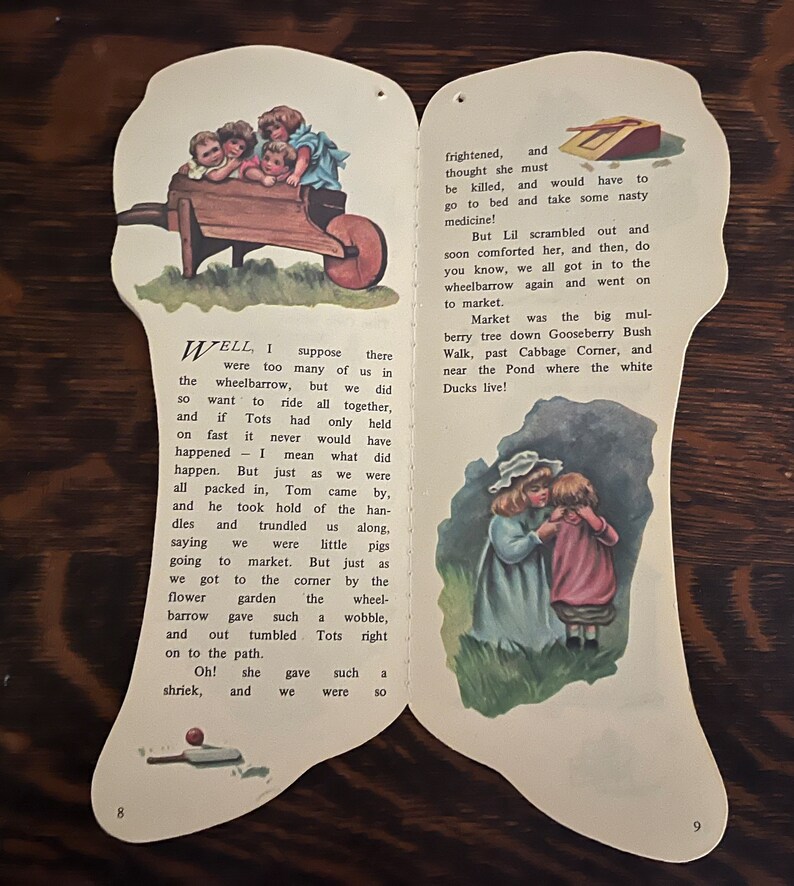 WELL, I suppose there
were too many of us in
the wheelbarrow, but we did
so want to ride all together,
and if Tots had only held
on fast it never would have
happened — I mean what did
happen. But just as we were
all packed in, Tom came by,
and he took hold of the han-
dles and trundled us along,
saying we were little pigs
going to market. But just as
we got to the corner by the
flower garden the wheel-
barrow gave such a wobble,
and out tumbled Tots right
on to the path.
Oh! she gave such a
shriek, and we were so
8
frightened, and
thought she must
be killed, and would have to
go to bed and take some nasty
medicine!
But Lil scrambled out and
soon comforted her, and then, do
you know, we all got in to the
wheelbarrow again and went on
to market.
Market was the big mul-
berry tree down Gooseberry Bush
Walk, past Cabbage Corner, and
near the Pond where the white
Ducks live!
9